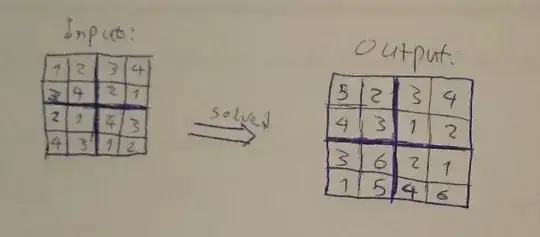 Input:
1 2 3 4
3 4 2 1
2 1 4 3
4 3 1 2
solved
Output:
5 2 3 4
4 3 1 2
3 6 2 1
1 5 4 6